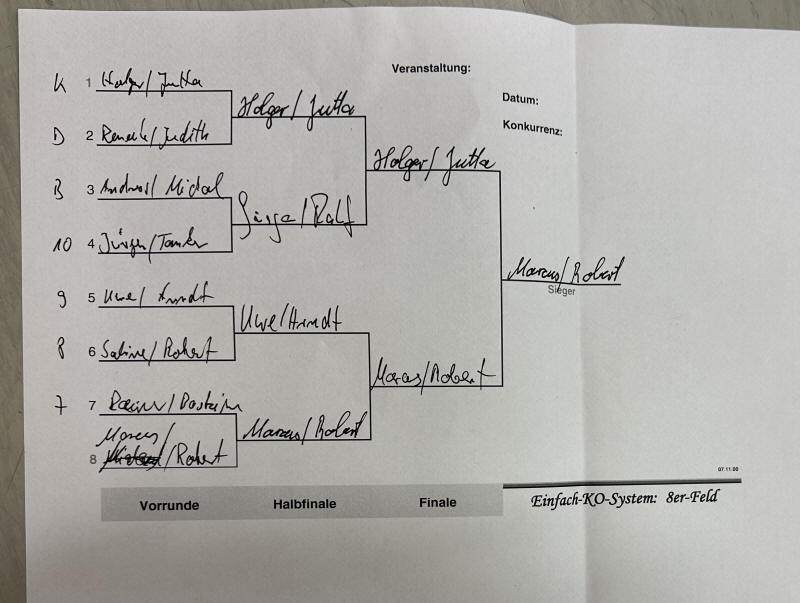 Veranstaltung:
Datum:
Konkurrenz:
K 1 Holger/Jutta
D 2 /Judith
B 3 Andreas/
10 4 Jürgen/
9 5 Uwe/Arndt
8 6 Sabine/Robert
7 7 Rainer/
Marcus/
8 /Robert
Holger/Jutta
/Ralf
Uwe/Arndt
Marcus/Robert
Holger/Jutta
Marcus/Robert
Marcus/Robert
Sieger
07.11.00
Vorrunde Halbfinale Finale
Einfach-KO-System: 8er-Feld